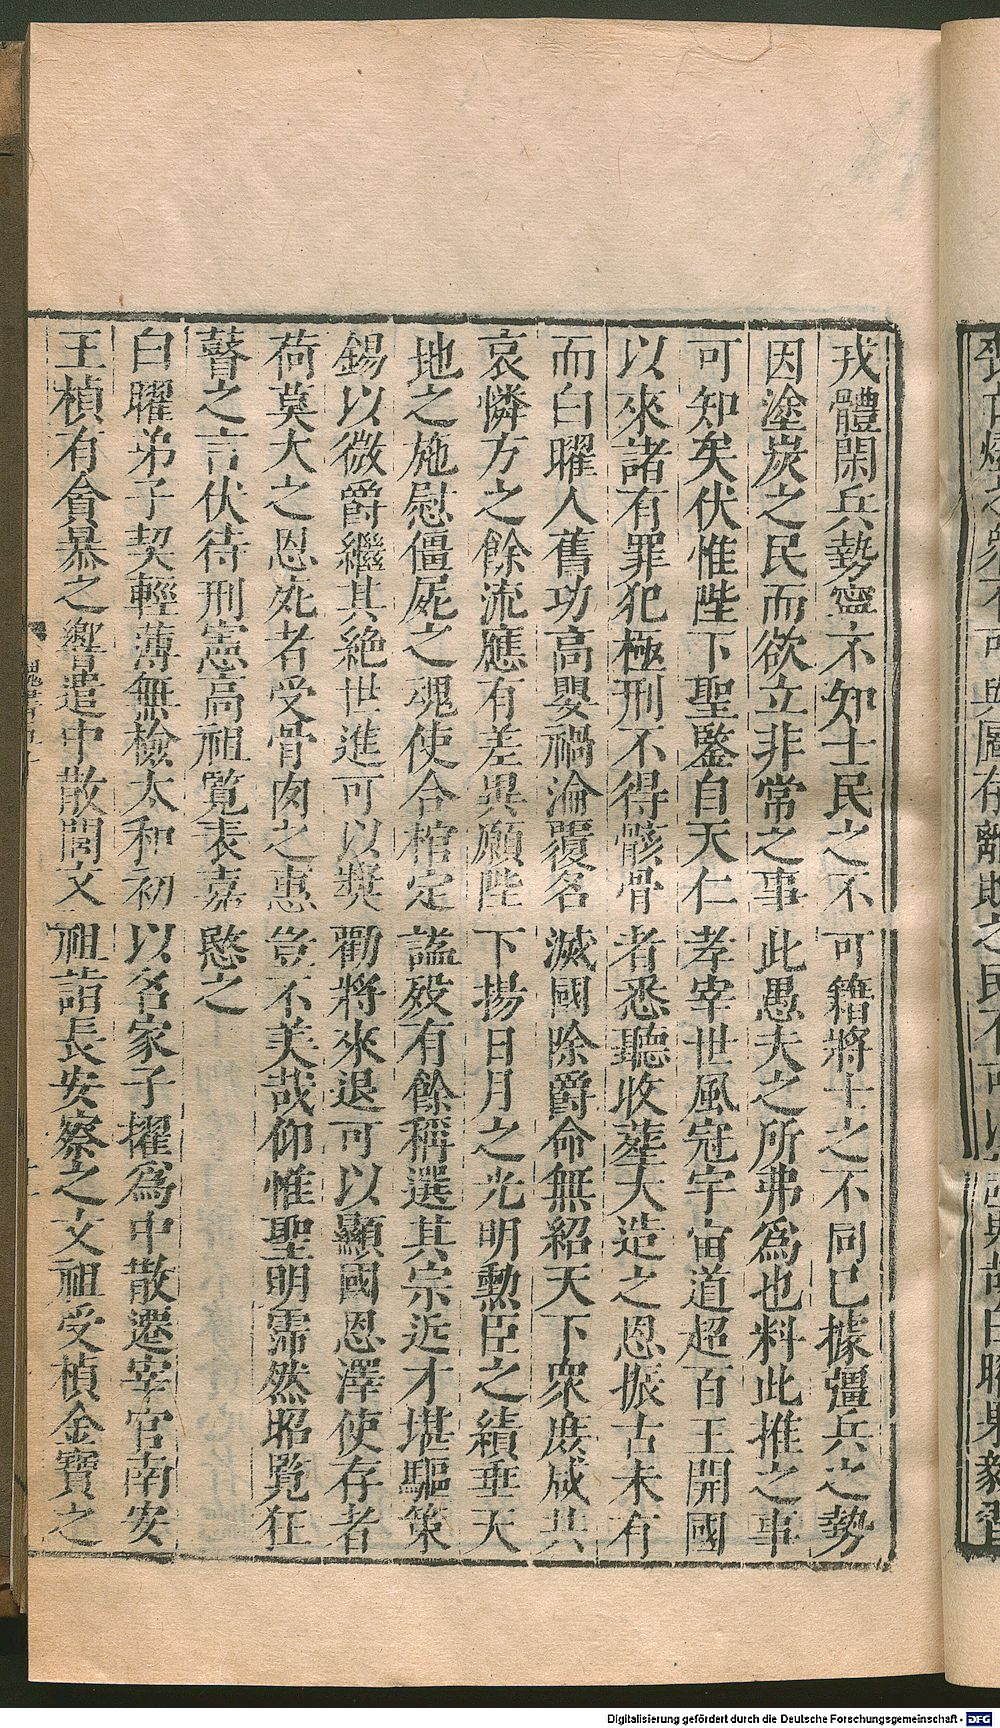 戎體閑兵勢寧不知士民之不可籍將士之不同已據彊兵之勢
因塗炭之民而欲立非常之事此愚夫之所弗爲也料此推之事
可知矣伏惟陛下聖鑒自天仁孝宰世風冠宇宙道超百王開國
以來諸有罪犯極刑不得骸骨者悉聽收葬大造之恩振古未有
而白曜人舊功高嬰禍淪覆名滅國除爵命無紹天下衆庶咸共
哀憐方之餘流應有差異願陛下揚日月之光明勲臣之績垂天
地之施慰僵屍之魂使合棺定謚殁有餘稱選其宗近才堪驅策
錫以微爵繼其絶世進可以奬勸將來退可以顯國恩澤使存者
荷莫大之恩死者受骨肉之惠豈不美哉仰惟聖明霈然昭覧狂
瞽之言伏待刑憲高祖覧表嘉愍之
白曜弟子契輕薄無檢太和初以名家子擢爲中散遷宰官南安
王楨有貪暴之響遣中散閭文祖詣長安察之文祖受楨金寶之
Digitalisierung gefördert durch die Deutsche Forschungsgemeinschaft - DFG